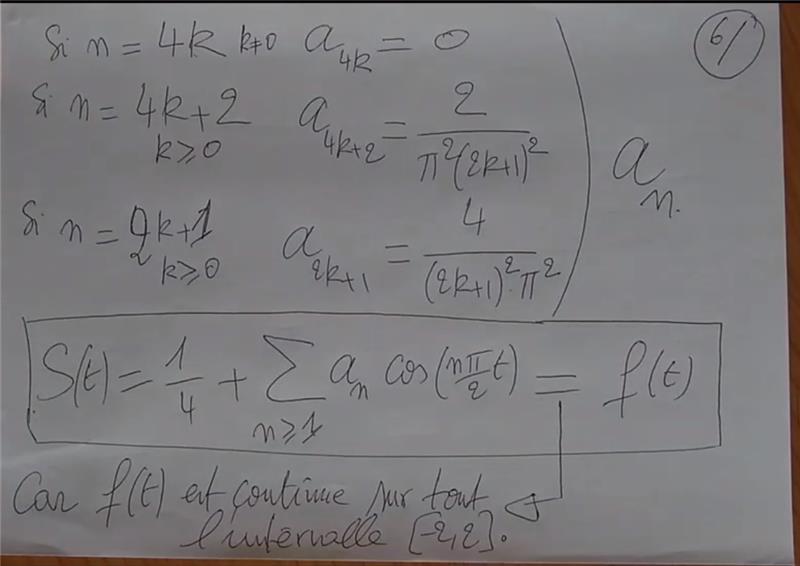 6/
Si n = 4k k≠0 a_{4k} = 0
Si n = 4k+2 k≥0 a_{4k+2} = \frac{2}{π²(2k+1)²}
a_n.
Si n = 2k+1 k≥0 a_{2k+1} = \frac{4}{(2k+1)²π²}
S(t) = \frac{1}{4} + \sum_{n≥1} a_n cos(\frac{nπ}{2}t) = f(t)
Car f(t) est continue sur tout
l'intervalle [-2,2].